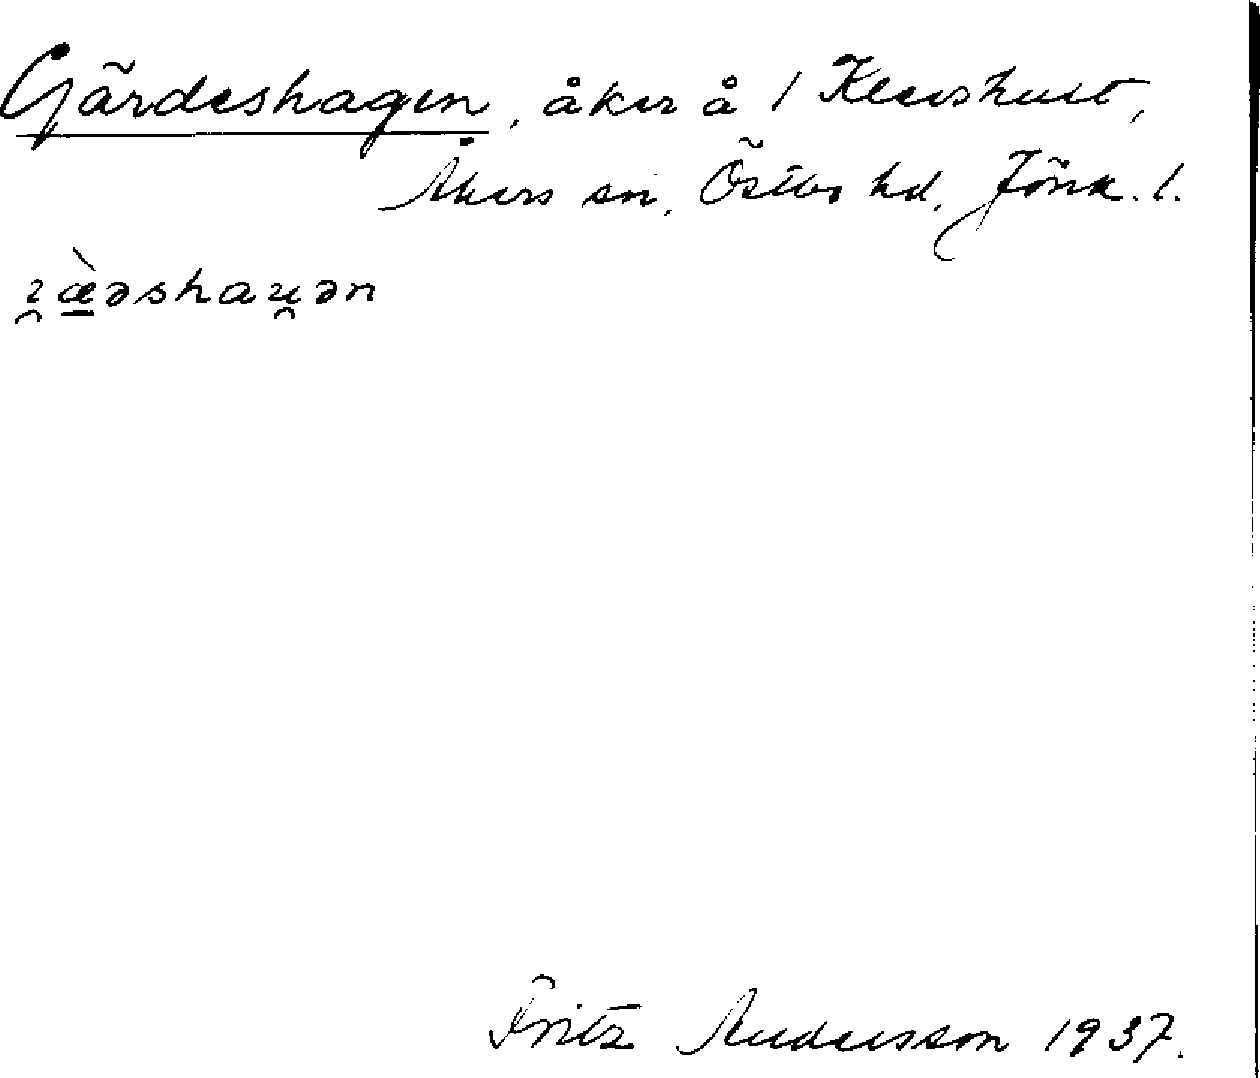 Gjärdeshagen, åker å 1 Klevshult,
Åkers sn, Östbo hd, Jönk. l.
ɪ̯æ̀əshau̯ən
Fritz Andersson 1937.